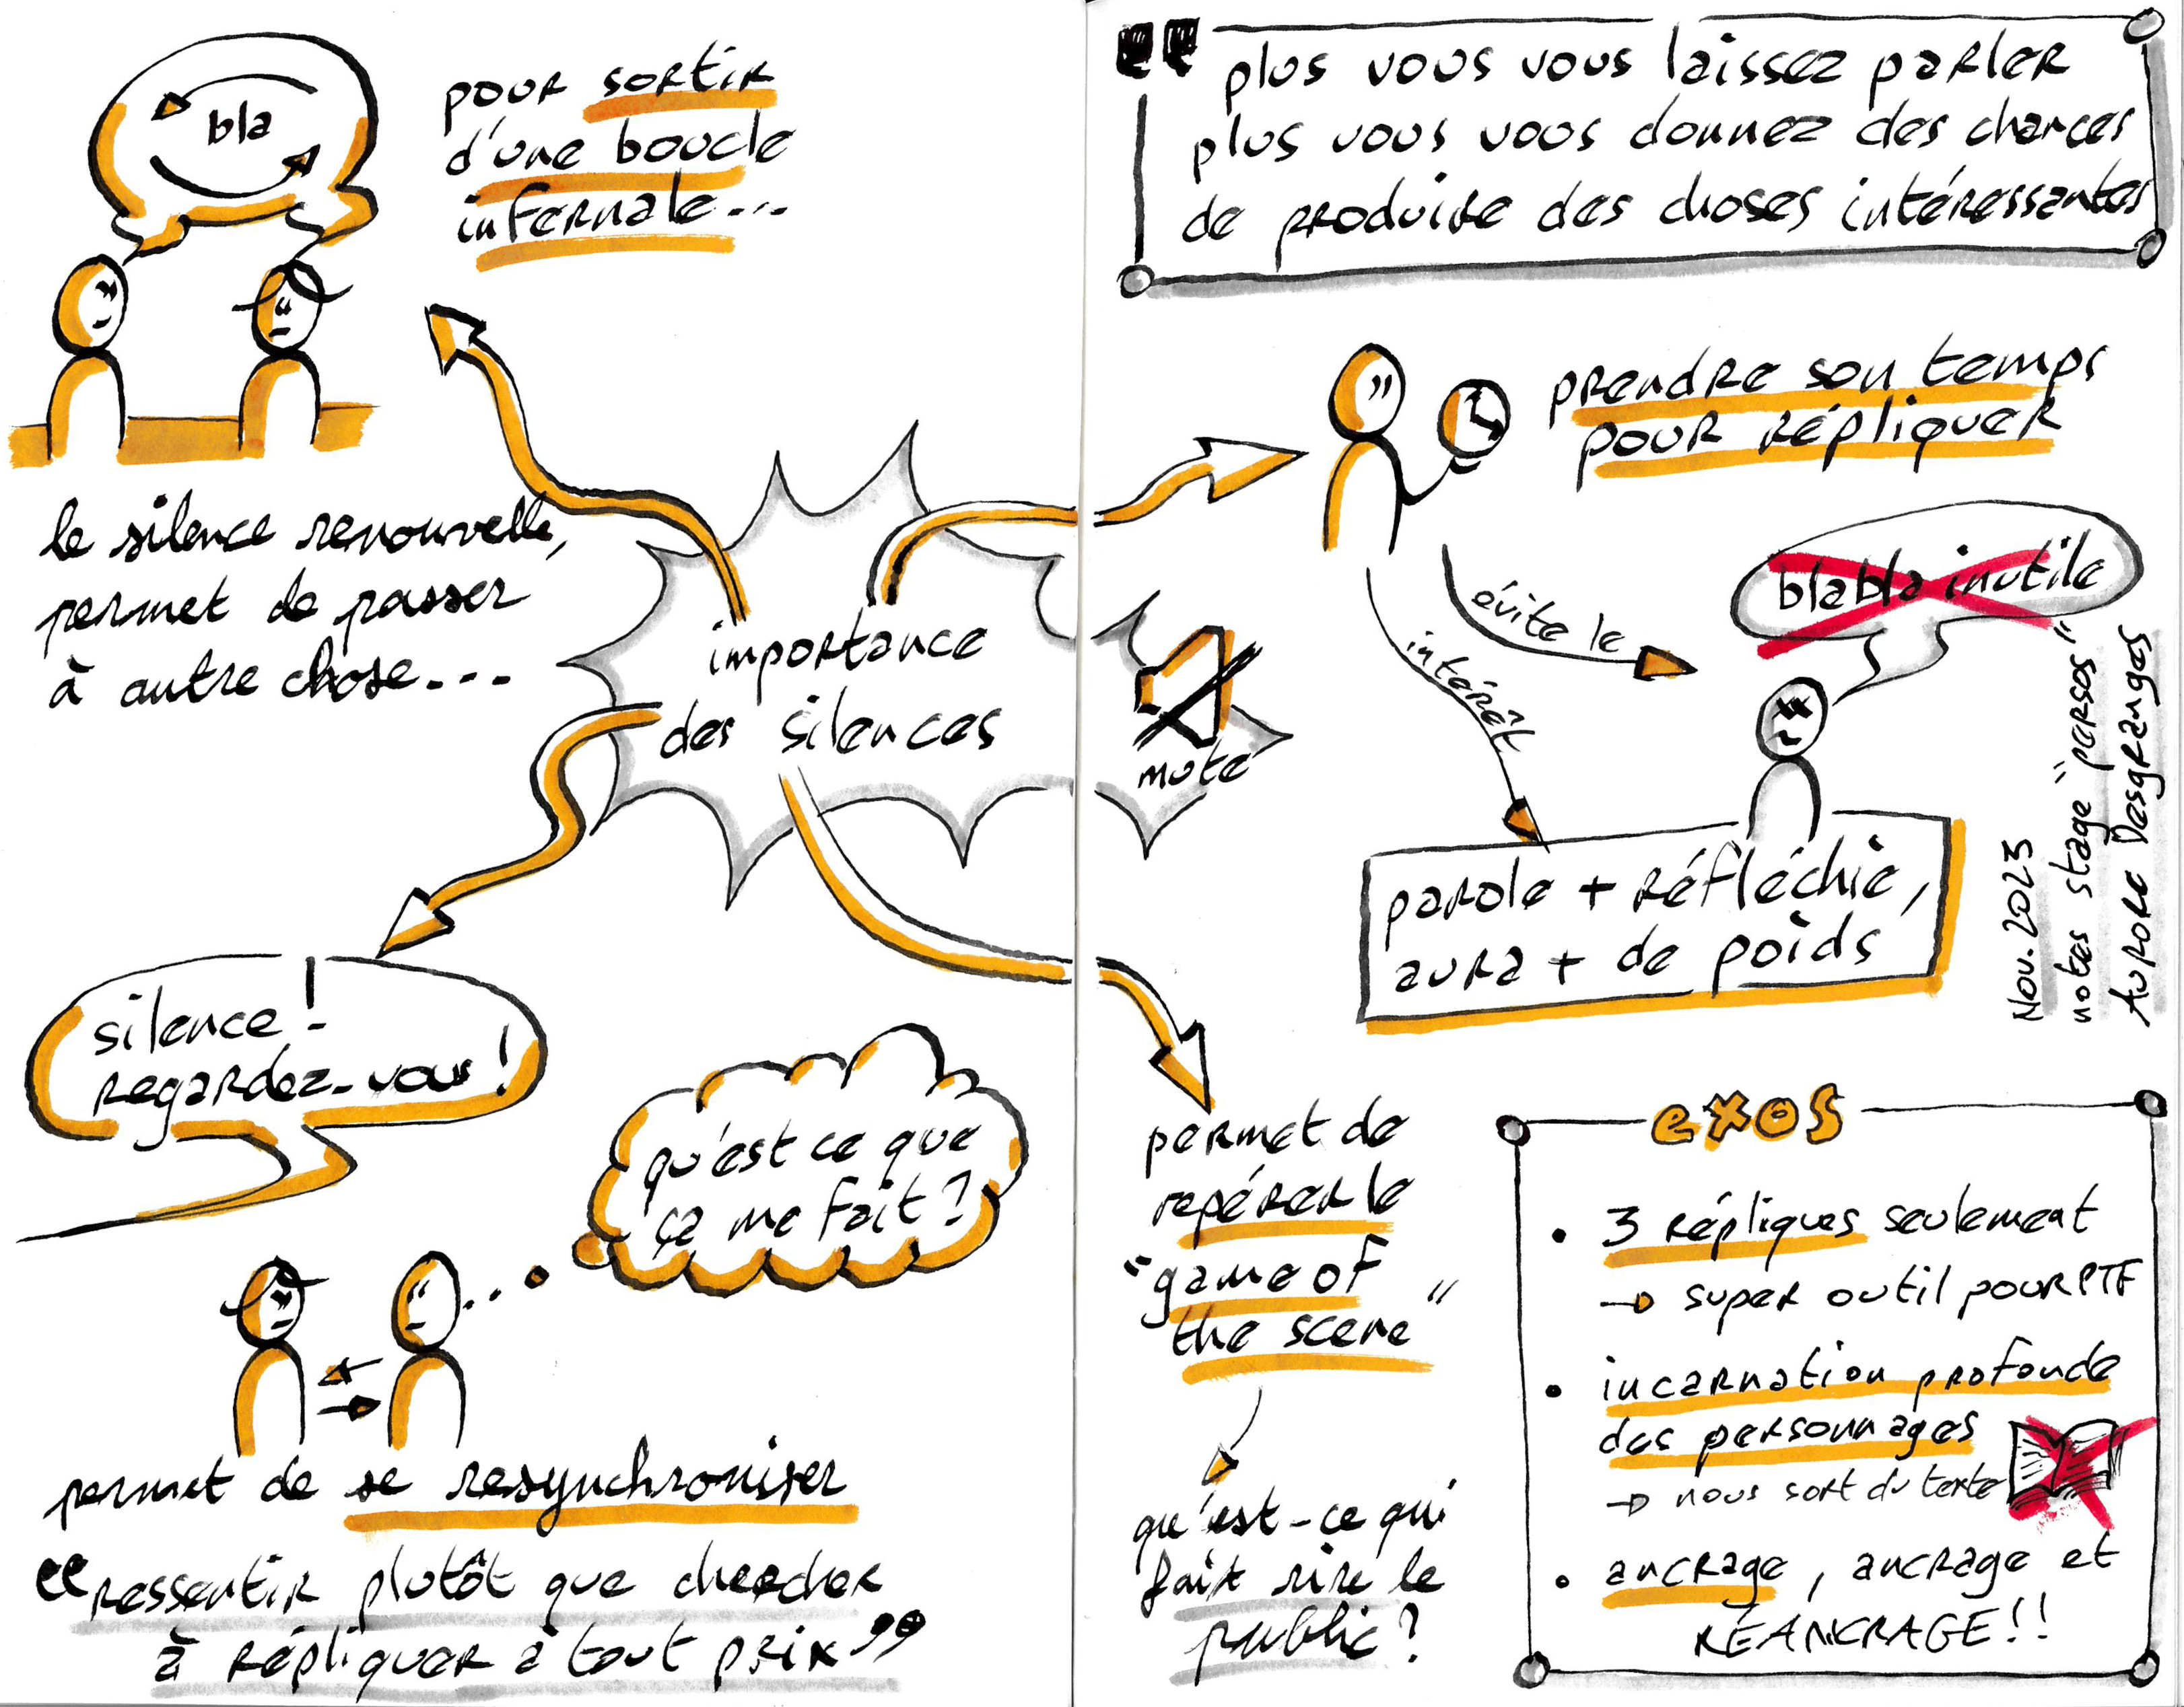 bla
pour sortir
d'une boucle
infernale...
le silence renouvelle,
permet de passer
à autre chose...
importance
des silences
mute
silence !
regardez-vous !
qu'est ce que
ça me fait ?
permet de se resynchroniser
"ressentir plutôt que chercher
à répliquer à tout prix"
" plus vous vous laissez parler
plus vous vous donnez des chances
de produire des choses intéressantes
prendre son temps
pour répliquer
évite le
blabla inutile
intérêt
parole + réfléchie,
aura + de poids
Nov. 2023
notes stage "persos"
Aurore Desgranges
permet de
repérer le
"game of
the scene"
qu'est-ce qui
fait rire le
public ?
exos
• 3 répliques seulement
→ super outil pour PTF
• incarnation profonde
des personnages
→ nous sort du texte
• ancrage, ancrage et
RÉANCRAGE !!